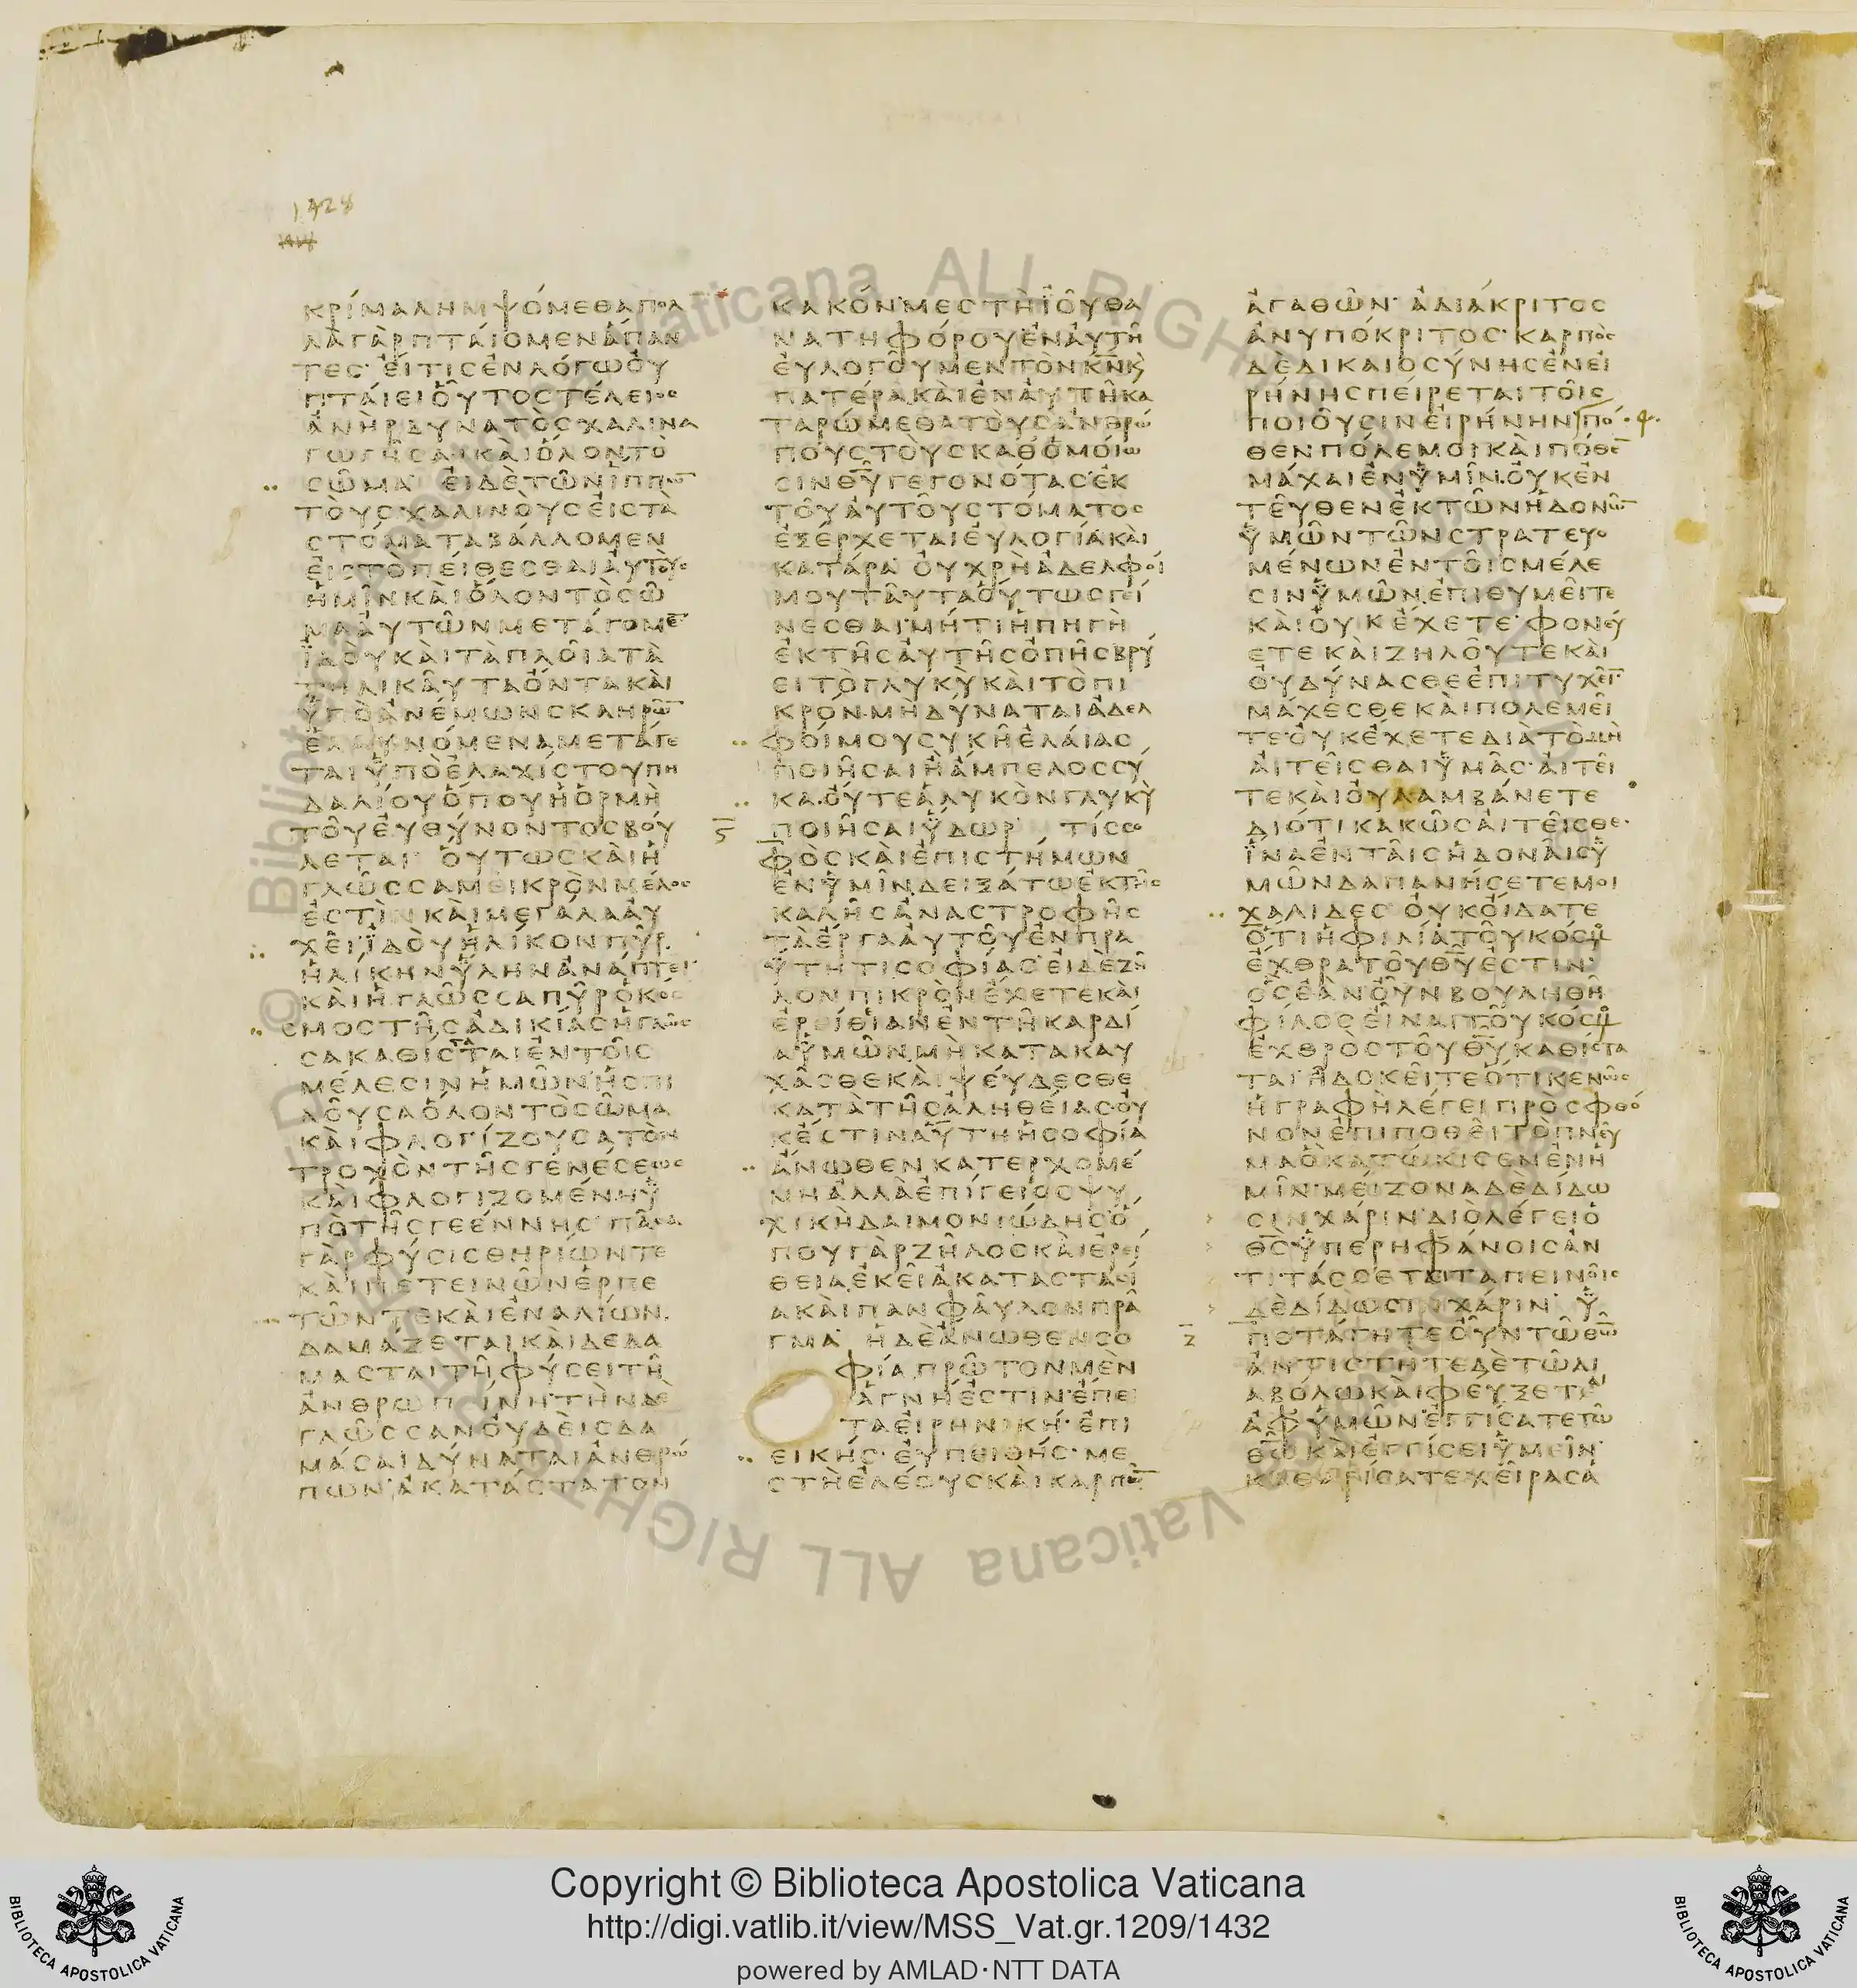 1428
ΚΡΊΜΑΛΗΜΨΌΜΕΘΑΠΟΛ
ΛᾺΓᾺΡΠΤΆΙΟΜΕΝἍΠΑΝ
ΤΕΣ· ἘΊΤΙΣἘΝΛΌΓΩὈΥ
ΠΤΆΙΕΙὉΥΤΟΣΤΈΛΕΙΟΣ
ἈΝῊΡΔΥΝΑΤῸΣΧΑΛΙΝΑ
ΓΩΓΗΣΑΙΚᾺΙὍΛΟΝΤῸ
ΣΩΜΑ· ἘΙΔῈΤΩΝἹΠΠΩ̅
ΤΟΥΣΧΑΛΙΝΟΥΣἘΙΣΤᾺ
ΣΤΌΜΑΤΑΒΆΛΛΟΜΕΝ
ἘΙΣΤῸΠΕΊΘΕΣΘΑΙἈΥΤΟΥΣ
ἩΜΙΝΚᾺΙὍΛΟΝΤῸΣΩ
ΜΑἈΥΤΩΝΜΕΤΆΓΟΜΕ̅
ἸΔΟΥΚᾺΙΤᾺΠΛΟΙΑΤᾺ
ΤΗΛΙΚΑΥΤΑὌΝΤΑΚᾺΙ
ΥΠῸἈΝΈΜΩΝΣΚΛΗΡΩ̅
ἘΛΑΥΝΌΜΕΝΑΜΕΤΆΓΕ
ΤΑΙΥΠῸἘΛΑΧΊΣΤΟΥΠΗ
ΔΑΛΊΟΥὍΠΟΥἩὉΡΜῊ
ΤΟΥΕΥΘΎΝΟΝΤΟΣΒΟΎ
ΛΕΤΑΙ· ὍΥΤΩΣΚᾺΙἩ
ΓΛΩΣΣΑΜΙΚΡῸΝΜΈΛΟΣ
ἘΣΤῚΝΚᾺΙΜΕΓΆΛΑΑΥ
ΧΕΙ·ἸΔΟΥἩΛΊΚΟΝΠΥΡ
ἩΛΊΚΗΝΎΛΗΝἈΝΆΠΤΕΙ·
ΚᾺΙἩΓΛΩΣΣΑΠΥΡὉΚΌΣ
ΣΜΟΣΤΗΣἈΔΙΚΊΑΣἩΓΛΩΣ
ΣΑΚΑΘΊΣΤΑΤΑΙἘΝΤΟΙΣ
ΜΈΛΕΣΙΝἩΜΩΝἩΣΠΙ
ΛΟΥΣΑὍΛΟΝΤῸΣΩΜΑ
ΚᾺΙΦΛΟΓΊΖΟΥΣΑΤῸΝ
ΤΡΟΧῸΝΤΗΣΓΕΝΈΣΕΩΣ
ΚᾺΙΦΛΟΓΙΖΟΜΈΝΗΥ
ΠῸΤΗΣΓΕΈΝΝΗΣ· ΠΑΣΑ
ΓᾺΡΦΎΣΙΣΘΗΡΊΩΝΤΕ
ΚᾺΙΠΕΤΕΙΝΩΝἙΡΠΕ
ΤΩΝΤΕΚᾺΙἘΝΑΛΊΩΝ.
ΔΑΜΆΖΕΤΑΙΚᾺΙΔΕΔΑ
ΜΑΣΤΑΙΤΗΦΎΣΕΙΤΗ
ἈΝΘΡΩΠΊΝΗΤῊΝΔῈ
ΓΛΩΣΣΑΝΟΥΔΕῚΣΔΑ
ΜΆΣΑΙΔΎΝΑΤΑΙἈΝΘΡΏ
ΠΩΝ·ἈΚΑΤΆΣΤΑΤΟΝ
ΚΑΚΌΝ·ΜΕΣΤῊἸΟΥΘΑ
ΝΑΤΗΦΌΡΟΥἘΝΑΥΤΗ
ἘΥΛΟΓΟΥΜΕΝΤῸΝΚ̅Ν̅Κ
ΠΑΤΈΡΑ.ΚᾺΙἘΝΑΥΤΗΚΑ
ΤΑΡΏΜΕΘΑΤΟΥΣἈΝΘΡΏ
ΠΟΥΣΤΟΥΣΚΑΘὉΜΟΊΩ
ΣΙΝΘ̅Υ̅ΓΕΓΟΝΌΤΑΣἘΚ
ΤΟΥΑΥΤΟΥΣΤΌΜΑΤΟΣ
ἘΞΈΡΧΕΤΑΙἘΥΛΟΓΊΑΚᾺΙ
ΚΑΤΆΡΑ· ΟΥΧΡῊἈΔΕΛΦΟΊ
ΜΟΥΤΑΥΤΑὍΥΤΩΣΓΕΊ
ΝΕΣΘΑΙ·ΜΉΤΙἩΠΗΓῊ
ἘΚΤΗΣΑΥΤΗΣὈΠΗΣΒΡΎ
ΕΙΤῸΓΛΥΚῪΚᾺΙΤῸΠΙ
ΚΡΌΝ·ΜῊΔΎΝΑΤΑΙἈΔΕΛ
ΦΟΊΜΟΥΣΥΚΗἘΛΆΙΑΣ
ΠΟΙΗΣΑΙἪἌΜΠΕΛΟΣΣΥ
ΚΑ.ΟΎΤΕἉΛΥΚῸΝΓΛΥΚῪ
S̅
ΠΟΙΗΣΑΙΎΔΩΡ· ΤΊΣΣΟ
ΦῸΣΚᾺΙἘΠΙΣΤΉΜΩΝ
ἘΝΥΜΙΝ.ΔΕΙΞΆΤΩἘΚΤΗΣ
ΚΑΛΗΣἈΝΑΣΤΡΟΦΗΣ
ΤᾺἜΡΓΑΑΥΤΟΥἘΝΠΡΑ
ΫΤΗΤΙΣΟΦΊΑΣ· ἘΙΔῈΖΗ
ΛΟΝΠΙΚΡῸΝἜΧΕΤΕΚᾺΙ
ἘΡΙΘΊΑΝἘΝΤΗΚΑΡΔΊ
ΑΥΜΩΝ.ΜῊΚΑΤΑΚΑΥ
ΧΑΣΘΕΚᾺΙΨΈΥΔΕΣΘΕ
ΚΑΤᾺΤΗΣἈΛΗΘΈΙΑΣΟΥ
ΚἜΣΤΙΝΑΎΤΗἩΣΟΦΊΑ
ἌΝΩΘΕΝΚΑΤΕΡΧΟΜΈ
ΝΗἈΛΛᾺἘΠΊΓΕΙΟΣΨΥ
ΧΙΚῊΔΑΙΜΟΝΙΏΔΗΣ·Ὅ
ΠΟΥΓᾺΡΖΗΛΟΣΚᾺΙἘΡΕΙ
ΘΕΙΑ.ἘΚΕΙἈΚΑΤΑΣΤΑΣΊ
ΑΚᾺΙΠΑΝΦΑΥΛΟΝΠΡΑ
ΓΜΑ· ἩΔῈἌΝΩΘΕΝΣΟ
ΦΊΑΠΡΩΤΟΝΜῈΝ
ἉΓΝΉἘΣΤΙΝ·ἜΠΕΙ
ΤΑἘΙΡΗΝΙΚΉ· ἘΠΙ
ΕΙΚΉΣ· ἘΥΠΕΙΘΉΣ· ΜΕ
ΣΤῊἘΛΈΟΥΣΚᾺΙΚΑΡΠΩ̅
ἈΓΑΘΩΝ· ἈΔΙΆΚΡΙΤΟΣ
ἈΝΥΠΌΚΡΙΤΟΣ· ΚΑΡΠῸΣ
ΔῈΔΙΚΑΙΟΣΎΝΗΣἘΝΕΙ
ΡΉΝΗΣΠΕΊΡΕΤΑΙΤΟΙΣ
ΠΟΙΟΥΣΙΝἘΙΡΉΝΗΝΠΌ
ΘΕΝΠΌΛΕΜΟΙΚᾺΙΠΌΘΕ̅
ΜΆΧΑΙἘΝΥΜΙΝ.ΟΥΚἘΝ
ΤΕΥΘΕΝἘΚΤΩΝἩΔΟΝΩ̅
ΥΜΩΝΤΩΝΣΤΡΑΤΕΥΟ
ΜΈΝΩΝἘΝΤΟΙΣΜΈΛΕ
ΣΙΝΥΜΩΝ.ἘΠΙΘΥΜΕΙΤΕ
ΚᾺΙΟΥΚἜΧΕΤΕ· ΦΟΝΕΎ
ΕΤΕΚᾺΙΖΗΛΟΥΤΕΚᾺΙ
ΟΥΔΎΝΑΣΘΕἘΠΙΤΥΧΕΙ̅·
ΜΆΧΕΣΘΕΚᾺΙΠΟΛΕΜΕΙ
ΤΕ·ΟΥΚἜΧΕΤΕΔΙᾺΤῸΜῊ
ἈΙΤΕΙΣΘΑΙΥΜΑΣ· ἈΙΤΕΙ
ΤΕΚᾺΙΟΥΛΑΜΒΆΝΕΤΕ
ΔΙΌΤΙΚΑΚΩΣἈΙΤΕΙΣΘΕ·
ἽΝΑἘΝΤΑΙΣἩΔΟΝΑΙΣΥ
ΜΩΝΔΑΠΑΝΉΣΕΤΕΜΟΙ
ΧΑΛΙΔΕΣ· ΟΥΚΟΊΔΑΤΕ
ὍΤΙἩΦΙΛΊΑΤΟΥΚΌΣΜΟΥ
ἜΧΘΡΑΤΟΥΘ̅Υ̅ἘΣΤΙΝ·
ὋΣἘᾺΝΟΥΝΒΟΥΛΗΘΗ
ΦΊΛΟΣΕΙΝΑΙΤΟΥΚΌΣΜΟΥ
ἘΧΘΡῸΣΤΟΥΘ̅Υ̅ΚΑΘΊΣΤΑ
ΤΑΙ·ἪΔΟΚΕΙΤΕὍΤΙΚΕΝΩΣ
ἩΓΡΑΦῊΛΈΓΕΙΠΡῸΣΦΘΌ
ΝΟΝἘΠΙΠΟΘΕΙΤῸΠΝΕΥ
ΜΑὋΚΑΤΏΚΙΣΕΝἘΝἩ
ΜΙΝ·ΜΕΙΖΟΝΑΔΕΔΊΔΩ
ΣΙΝΧΆΡΙΝ·ΔΙΟΛΈΓΕΙὉ
Θ̅Σ̅ΥΠΕΡΗΦΆΝΟΙΣἈΝ
ΤΙΤΆΣΣΕΤΑΙΤΑΠΕΙΝΟΙΣ
ΔῈΔΊΔΩΣΙΝΧΆΡΙΝ· Υ
Ζ̅
ΠΟΤΆΓΗΤΕΟΥΝΤΩΘΕΩ
ἈΝΤΊΣΤΗΤΕΔῈΤΩΔΙ
ΑΒΌΛΩΚᾺΙΦΕΎΞΕΤΑΙ
ἈΦΥΜΩΝ·ἘΓΓΊΣΑΤΕΤΩ
Θ̅Ω̅ΚᾺΙἘΓΓΊΣΕΙΥΜΕΙΝ·
ΚΑΘΑΡΊΣΑΤΕΧΕΙΡΑΣἉ
Copyright © Biblioteca Apostolica Vaticana
http://digi.vatlib.it/view/MSS_Vat.gr.1209/1432
powered by AMLAD·NTT DATA
BIBLIOTECA APOSTOLICA VATICANA
BIBLIOTECA APOSTOLICA VATICANA